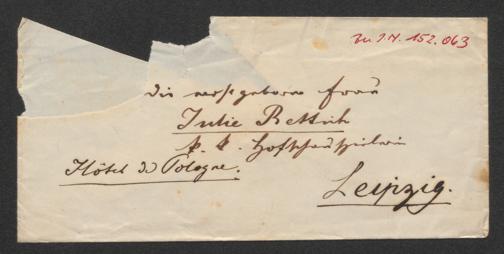 Zu I.N. 152.063
die wohlgeborne Frau
Julie Rettich
k. k. Hofschauspielerin
Hôtel de Pologne.
Leipzig.